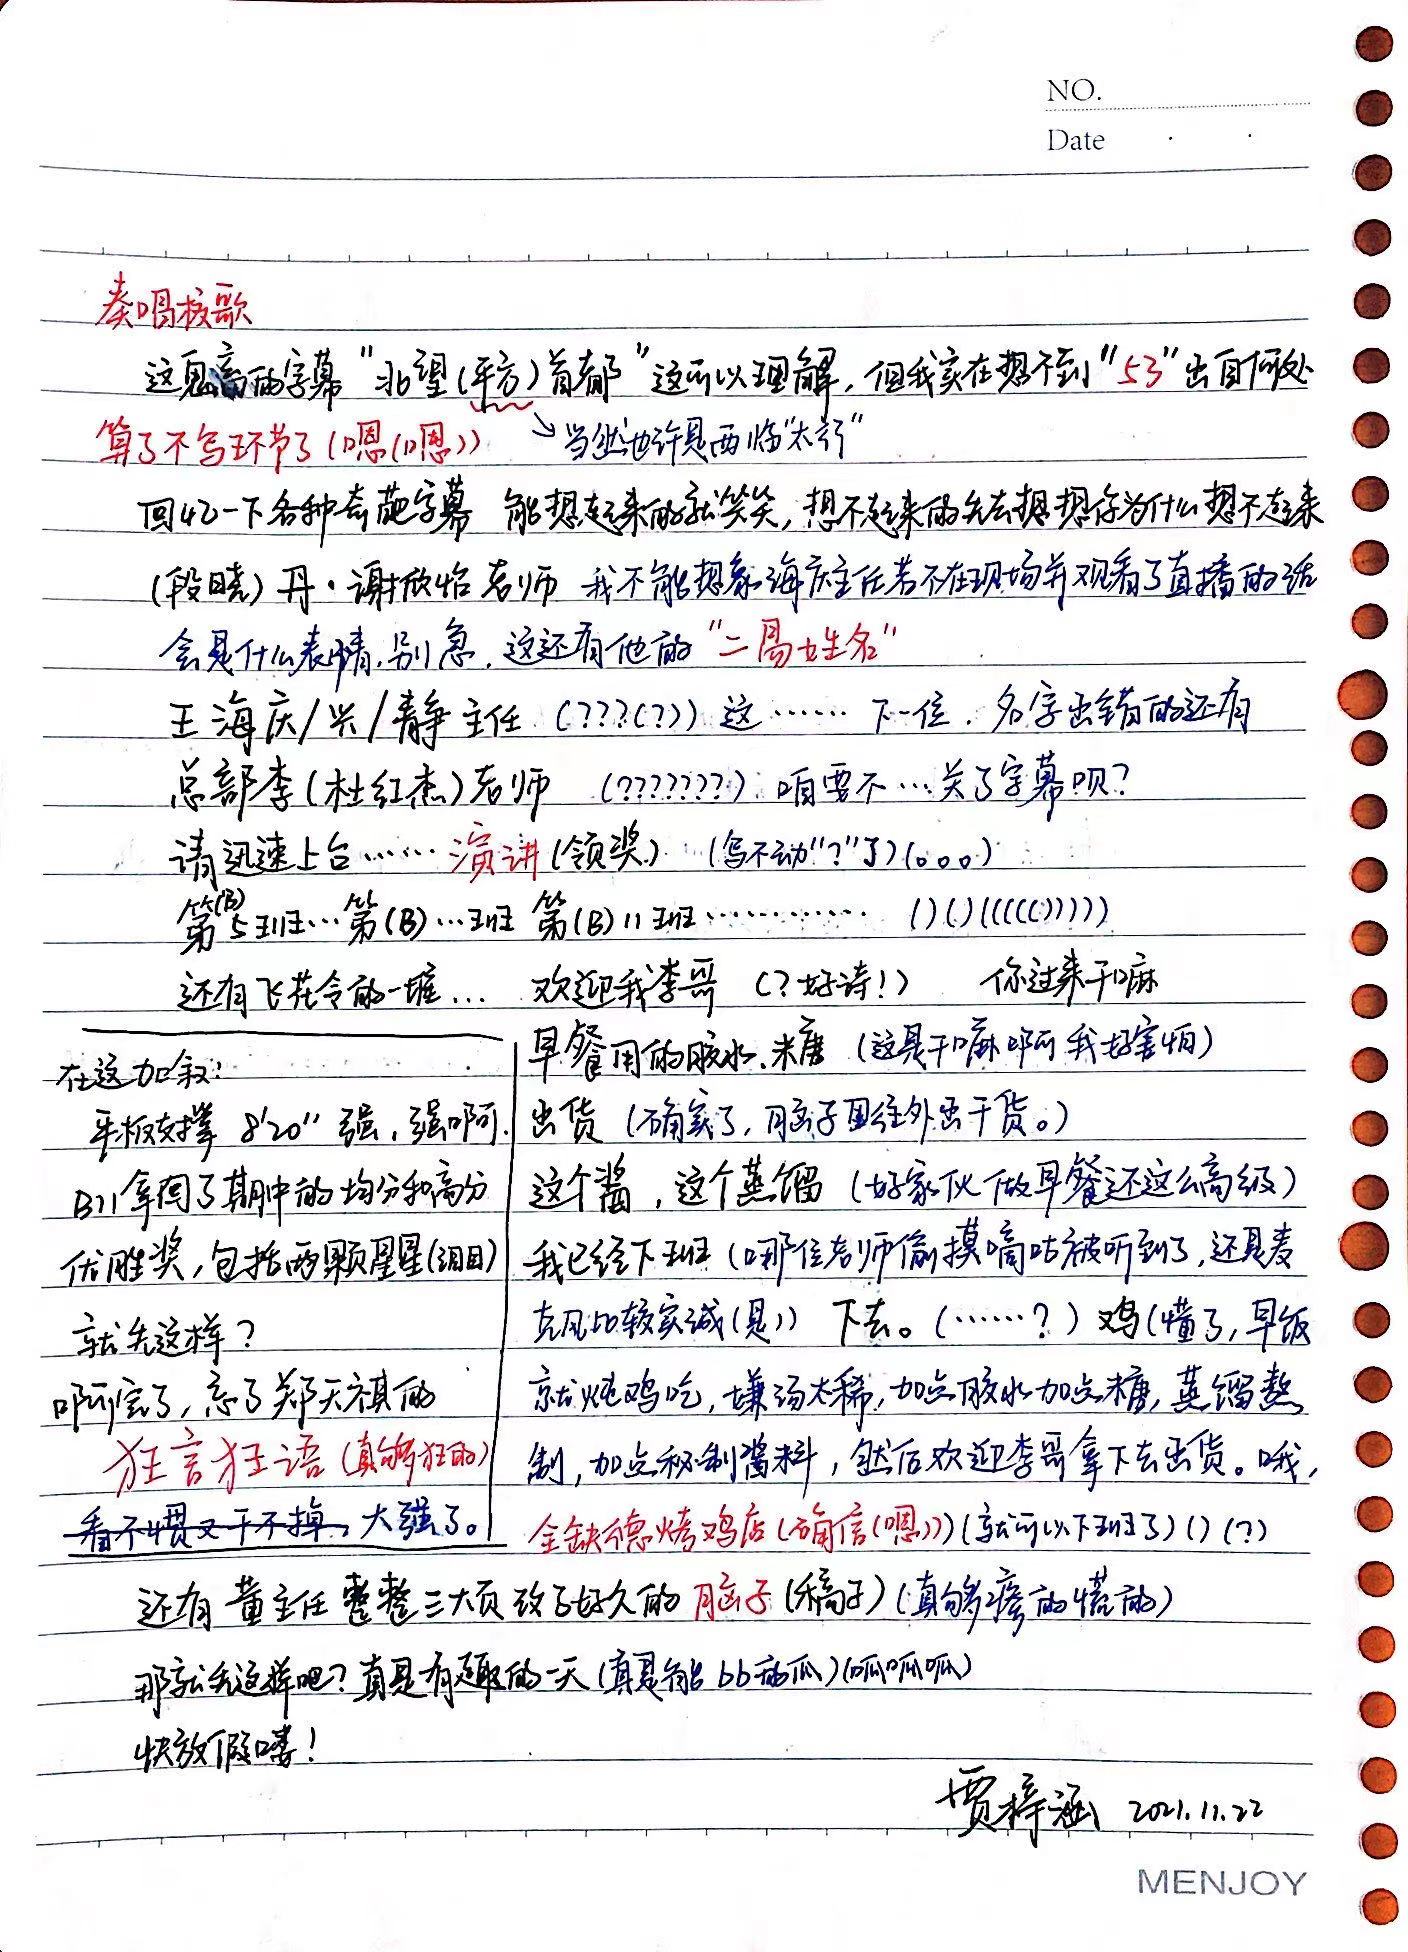 NO.
Date
奏唱校歌
这离离的字幕"北望(平方)首都"这可以理解,但我实在想不到"53"出自何处
算了不写环节了(嗯(嗯))
当然也许是西临"太行"
回忆一下各种奇葩字幕 能想起来的就笑笑,想不起来的先去想想你为什么想不起来
(段晓)丹·谢欣怡老师 我不能想象海庆主任若不在现场并观看了直播的话
会是什么表情,别急,这还有他的"二局姓名"
王海庆/兴/静主任 (???(?)) 这…… 下一位,名字出错的还有
总部李(杜红杰)老师 (???????) 咱要不…关了字幕呗?
请迅速上台……演讲(领奖) (写不动"?"了)(。。。)
第(B)5班…第(B)…班 第(B)11班………… ()()((((()))))
还有飞花令的一堆… 欢迎我李哥 (?好诗!) 你过来干嘛
在这加叙:
平板支撑 8'20" 强,强啊.
B11拿回了期中的均分和高分
优胜奖,包括两颗星星(泪目)
就先这样?
啊完了,忘了郑天祺的
狂言狂语(真够狂的)
看不惯又干不掉,太强了。
早餐用的胶水.米糖 (这是干嘛啊我好害怕)
出货 (确实了,脑子里往外出干货。)
这个酱,这个蒸馏 (好家伙做早餐还这么高级)
我已经下班 (哪位老师偷摸嘀咕被听到了,还是麦
克风比较实诚(是)) 下去。(……?) 鸡(懂了,早饭
就炖鸡吃,嫌汤太稀,加点胶水加点糖,蒸馏熬
制,加点秘制酱料,然后欢迎李哥拿下去出货。哦,
全缺德烤鸡店(确信(嗯)))(就可以下班了)()(?)
还有董主任整整三大页致了好久的脑子(稿子)(真够瘆的慌的)
那就先这样吧?真是有趣的一天(真是能bb的瓜)(呱呱呱)
快放假喽!
贾梓涵 2021.11.22
MENJOY